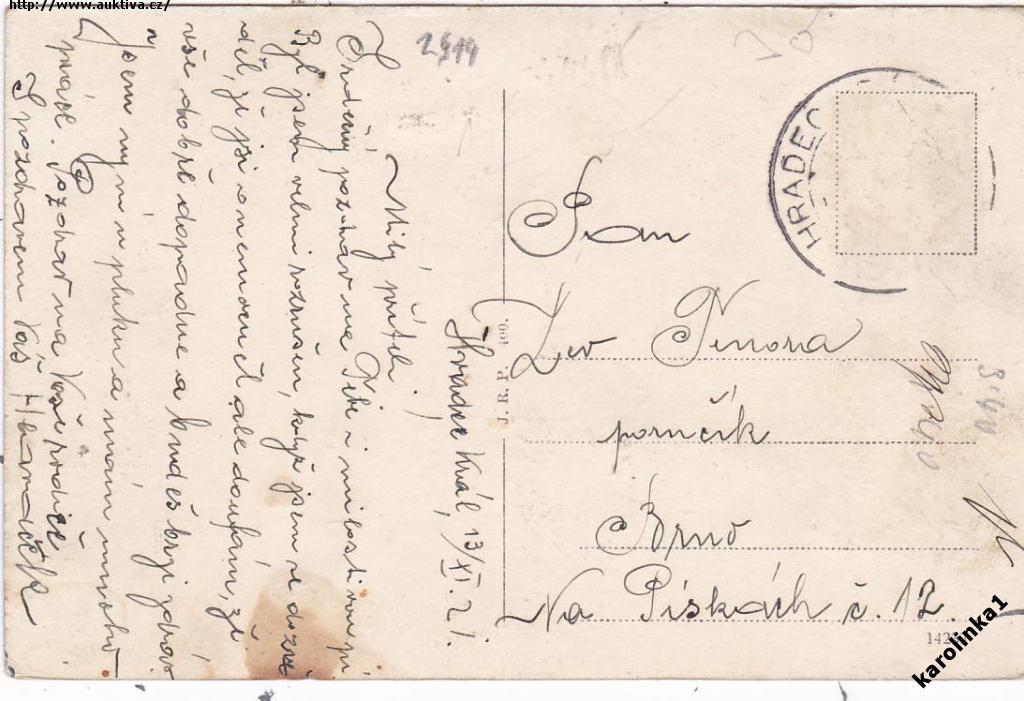 http://www.auktiva.cz/
2914
Hradec Král, 13/XI. 21.
Milý příteli,
Srdečný pozdrav na Tebe i milostivou pí
Byl jsem velmi vzrušen, když jsem se dozvě
děl, že jsi onemocněl ale doufám, že
vše dobře dopadne a budeš brzy zdráv
Jsem nyní u pluku a mám mnoho
práce. Pozdrav na Vaše rodiče
S pozdravem Váš
HRADEC
J. R. P. 400.
Pan
Lev
poručík
Brno
Na Pískách č. 12.
142
karolinka1